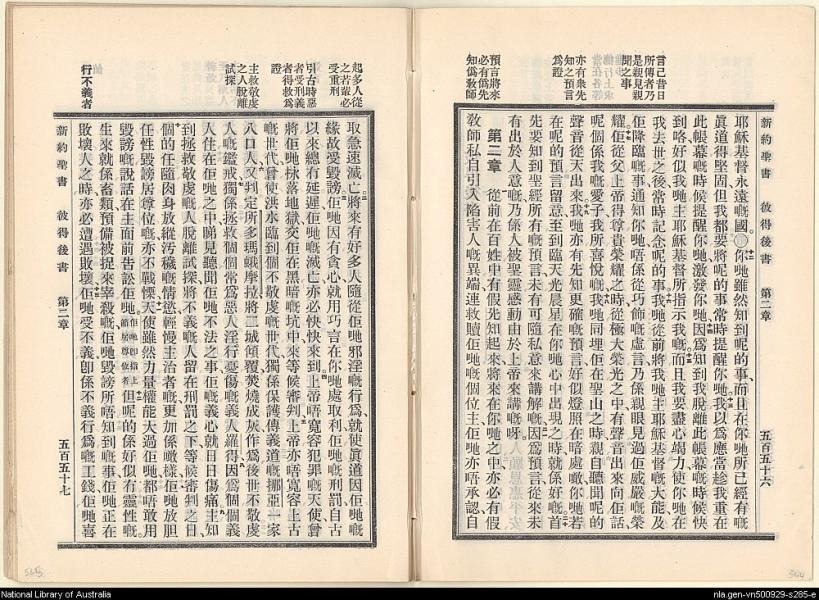 新約聖書 彼得後書 第二章 五百五十六
言己昔日
所傳者乃
是親見親
聞之事
亦有眾先
知之預言
為證
預言將來
必有偽先
知偽教師
耶穌基督永遠嘅國。你哋雖然知到呢的事、而且在你哋所已經有嘅
眞道得堅固但我都要將呢的事常時提醒你哋我以爲應當趁我重在
此帳幕嘅時候提醒你哋激發你哋因爲知到我脫離此帳幕嘅時候快
到咯好似我哋主耶穌基督所指示我嘅而且我要盡心竭力使你哋在
我去世之後常時記念呢的事我哋從前將我哋主耶穌基督嘅大能及
佢降臨嘅事通知你哋唔係從巧飾嘅虛言乃係親眼見過佢威嚴嘅榮
耀佢從父上帝得尊貴榮耀之時從極大榮光之中有聲音出來向佢話
呢個係我嘅愛子我所喜悅嘅我哋同埋佢在聖山之時親自聽聞呢的
聲音從天出來我哋亦有先知更確嘅預言好似燈照在暗處噉你哋若
在呢的預言留意至到臨天光晨星在你哋心中出現之時就係好嘅首
先要知到聖經所有嘅預言未有可隨私意來講解嘅因爲預言從來未
有出於人意嘅乃係人被聖靈感動由於上帝來講嘅呀
第二章 從前在百姓中有假先知起來將來在你哋之中亦必有假
教師私自引入陷害人嘅異端連救贖佢哋嘅個位主佢哋亦唔承認自
起多人從
之若輩必
受重刑
引古時惡
者受刑義
者得救爲
證
主救敬虔
之人脫離
試探
行不義者
取急速滅亡將來有好多人隨從佢哋邪淫嘅行爲就使眞道因佢哋嘅
緣故受毀謗佢哋因有貪心就用巧言在你哋處取利佢哋嘅刑罰自古
以來總有延遲佢哋嘅滅亡亦必快快來到上帝唔寬容犯罪嘅天使曾
將佢哋掉落地獄交佢在黑暗嘅坑中來等候審判上帝亦唔寬容上古
嘅世代曾使洪水臨到個不敬虔嘅世代獨係保護傳義道嘅挪亞一家
八口人又判定所多瑪蛾摩拉將二城傾覆焚燒成灰作爲後世不敬虔
人嘅鑑戒獨係拯救個個常爲惡人淫行憂傷嘅義人羅得因爲個個義
人住在佢哋之中睇見聽聞佢哋不法之事佢嘅義心就日日傷痛主知
到拯救敬虔嘅人脫離試探將不義嘅人留在刑罰之下等候審判之日
個的任隨肉身放縱汚穢嘅情慾輕慢主治者嘅更加係噉樣佢哋放胆
任性毀謗居尊位嘅亦不戰慄天使雖然力量權能大過佢哋都唔敢用
毀謗嘅說話在主面前告訟佢哋但呢的係好似有靈性嘅
生來就係畜類預備被捉來宰殺嘅佢哋毀謗所唔知到嘅事佢哋正在
敗壞人之時亦必遭遇敗壞佢哋受不義卽係不義行爲嘅工錢佢哋喜
新約聖書 彼得後書 第二章 五百五十七
National Library of Australia
nla.gen-vn500929-s285-e